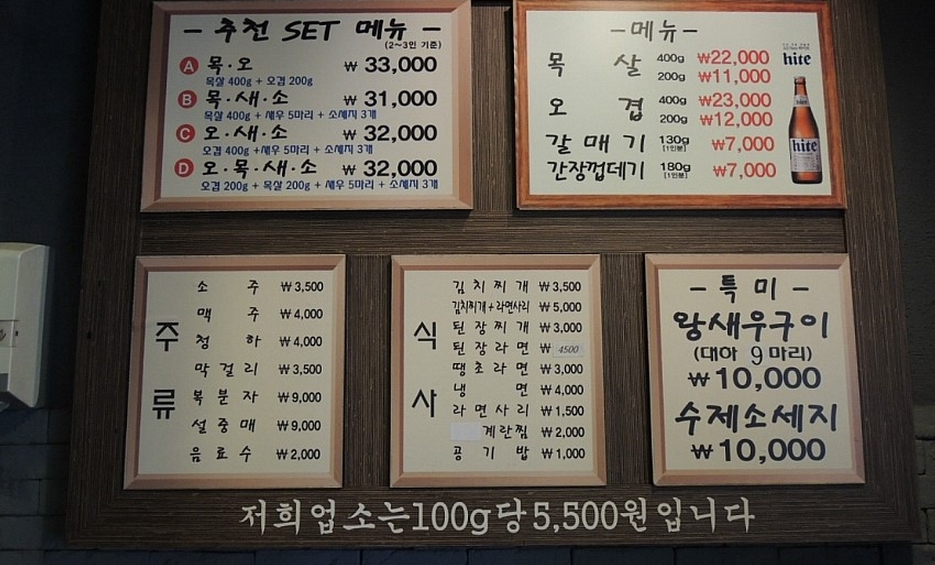 - 추천 SET 메뉴 -
(2~3인 기준)
A 목·오 ₩ 33,000
목살 400g + 오겹 200g
B 목·새·소 ₩ 31,000
목살 400g + 새우 5마리 + 소세지 3개
C 오·새·소 ₩ 32,000
오겹 400g +새우 5마리 + 소세지 3개
D 오·목·새·소 ₩ 32,000
오겹 200g + 목살 200g + 새우 5마리 + 소세지 3개
-메뉴-
목 살 400g ₩22,000
200g ₩11,000
오 겹 400g ₩23,000
200g ₩12,000
갈매기 130g [1인분] ₩7,000
간장껍데기 180g [1인분] ₩7,000
hite
hite
주류
소주 ₩3,500
맥주 ₩4,000
청하 ₩4,000
막걸리 ₩3,500
복분자 ₩9,000
설중매 ₩9,000
음료수 ₩2,000
식사
김치찌개 ₩3,500
김치찌개+라면사리 ₩5,000
된장찌개 ₩3,000
된장라면 ₩ 4500
땡초라면 ₩3,000
냉면 ₩4,000
라면사리 ₩1,500
계란찜 ₩2,000
공기밥 ₩1,000
- 특미 -
왕새우구이
(대하 9마리)
₩10,000
수제소세지
₩10,000
저희업소는100g당5,500원입니다